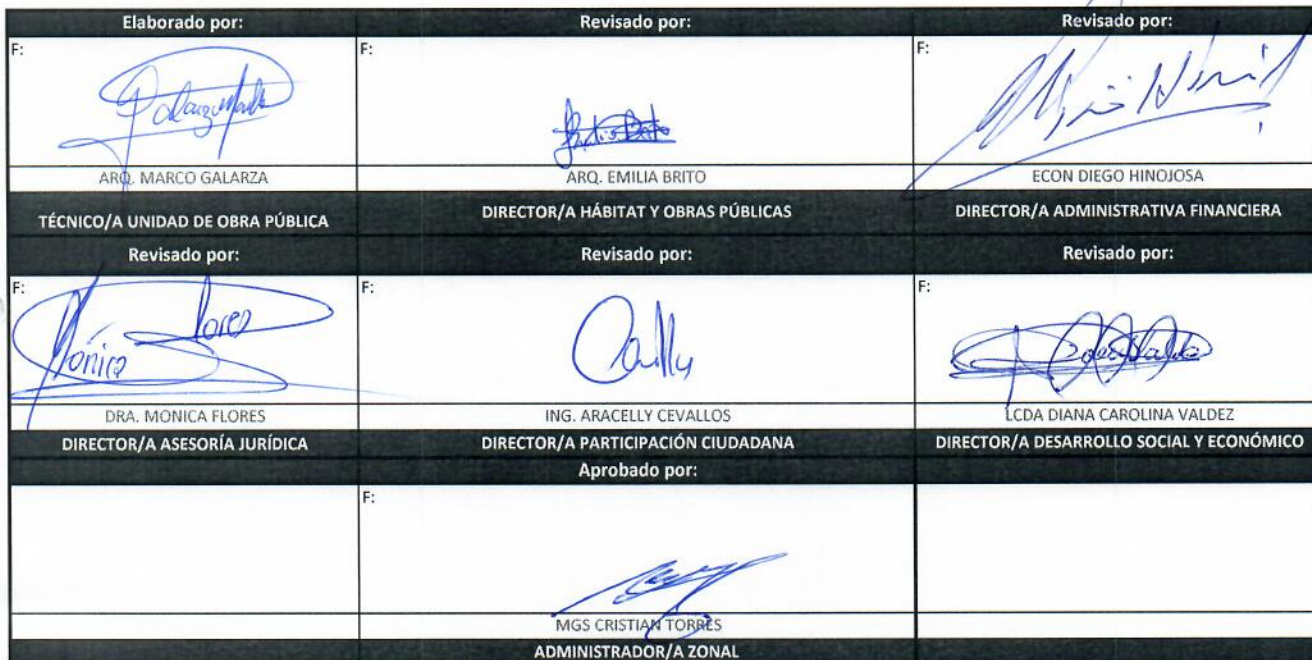 Elaborado por: Revisado por: Revisado por:
F: F: F:
ARQ. MARCO GALARZA ARQ. EMILIA BRITO ECON DIEGO HINOJOSA
TÉCNICO/A UNIDAD DE OBRA PÚBLICA DIRECTOR/A HÁBITAT Y OBRAS PÚBLICAS DIRECTOR/A ADMINISTRATIVA FINANCIERA
Revisado por: Revisado por: Revisado por:
F: F: F:
Mónica Flores
DRA. MONICA FLORES ING. ARACELLY CEVALLOS LCDA DIANA CAROLINA VALDEZ
DIRECTOR/A ASESORÍA JURÍDICA DIRECTOR/A PARTICIPACIÓN CIUDADANA DIRECTOR/A DESARROLLO SOCIAL Y ECONÓMICO
Aprobado por:
F:
MGS CRISTIAN TORRES
ADMINISTRADOR/A ZONAL